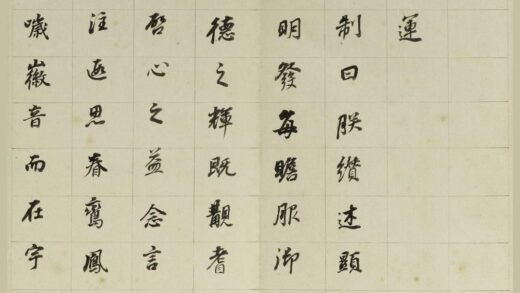 運
制曰朕纘述顯
明發每瞻服御
德之輝既覿耆
啓心之益念言
注遐思眷鸞鳳
噦徽音而在宇